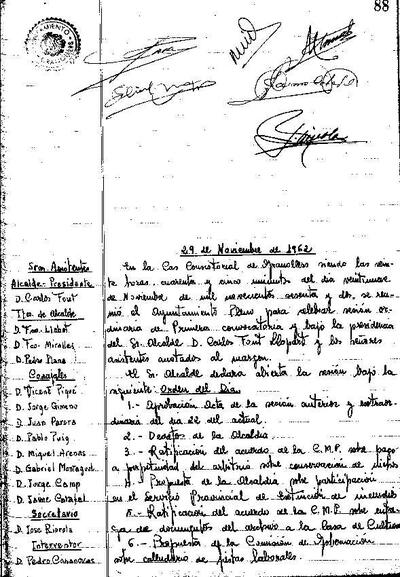 88
29 de Noviembre de 1962
Sres. Asistentes
Alcalde-Presidente
D. Carlos Font
Tte. de Alcalde
D. Fco. Llobet
D. Fco. Miralles
D. Pedro Plana
Concejales
D. Vicente Piqué
D. Jorge Gimeno
D. Juan Parera
D. Pablo Puig
D. Miquel Arenas
D. Gabriel
D. Jorge Camp
D. Jaime
Secretario
D. Jose
Interventor
D. Pedro Canoveras
En la Cas Consistorial de Granollers siendo las vein-
te horas, cuarenta y cinco minutos del dia veintinueve
de Noviembre de mil novecientos sesenta y dos, se reu-
nió el Ayuntamiento Pleno para celebrar sesión or-
dinaria de Primera convocatoria y bajo la presidencia
del Sr. Alcalde D. Carlos Font Llopart y los señores
asistentes anotados al margen.
El Sr. Alcalde declara abierta la sesión bajo la
siguiente Orden del Dia
1.- Aprobación Acta de la sesión anterior y extraor-
dinaria del dia 22 del actual.
2.- Decretos de la Alcaldia.
3.- Ratificación del acuerdo de la C.M.P. sobre pago
a perpetuidad del arbitrio sobre conservación de nichos
4.- Propuesta de la Alcaldia sobre participación
en el Servicio Provincial de Extinción de incendios
5.- Ratificación del acuerdo de la C.M.P. sobre entre-
ga de documentos del archivo a la Casa de Cultura
6.- Propuesta de la Comisión de Gobernación
sobre calendario de fiestas laborales.